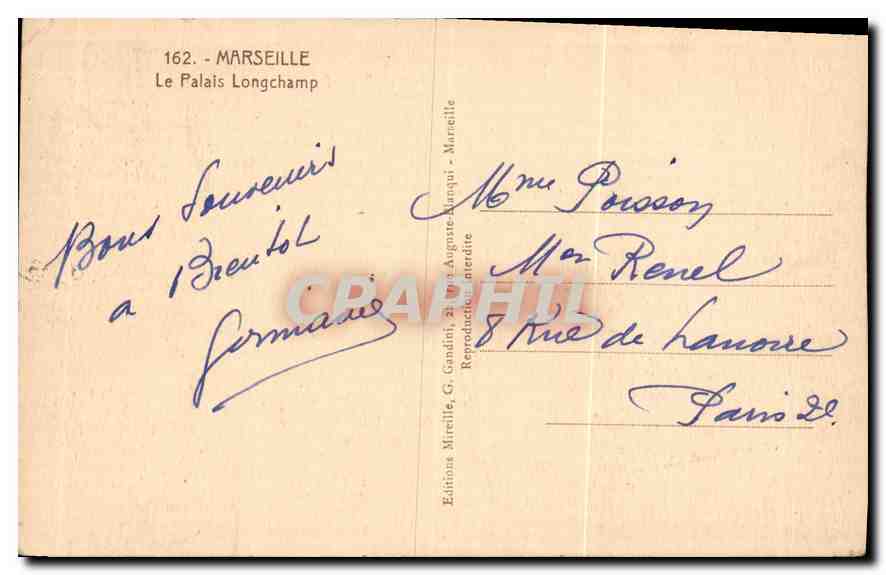 162. - MARSEILLE
Le Palais Longchamp
Bons Souvenirs
a Bientot
Germaine
Editions Mireille, G. Gandini, 21, rue Auguste-Blanqui - Marseille
Reproduction interdite
Mme Poisson
Mon Renel
8 Rue de
Paris 2e
CRAPHIL